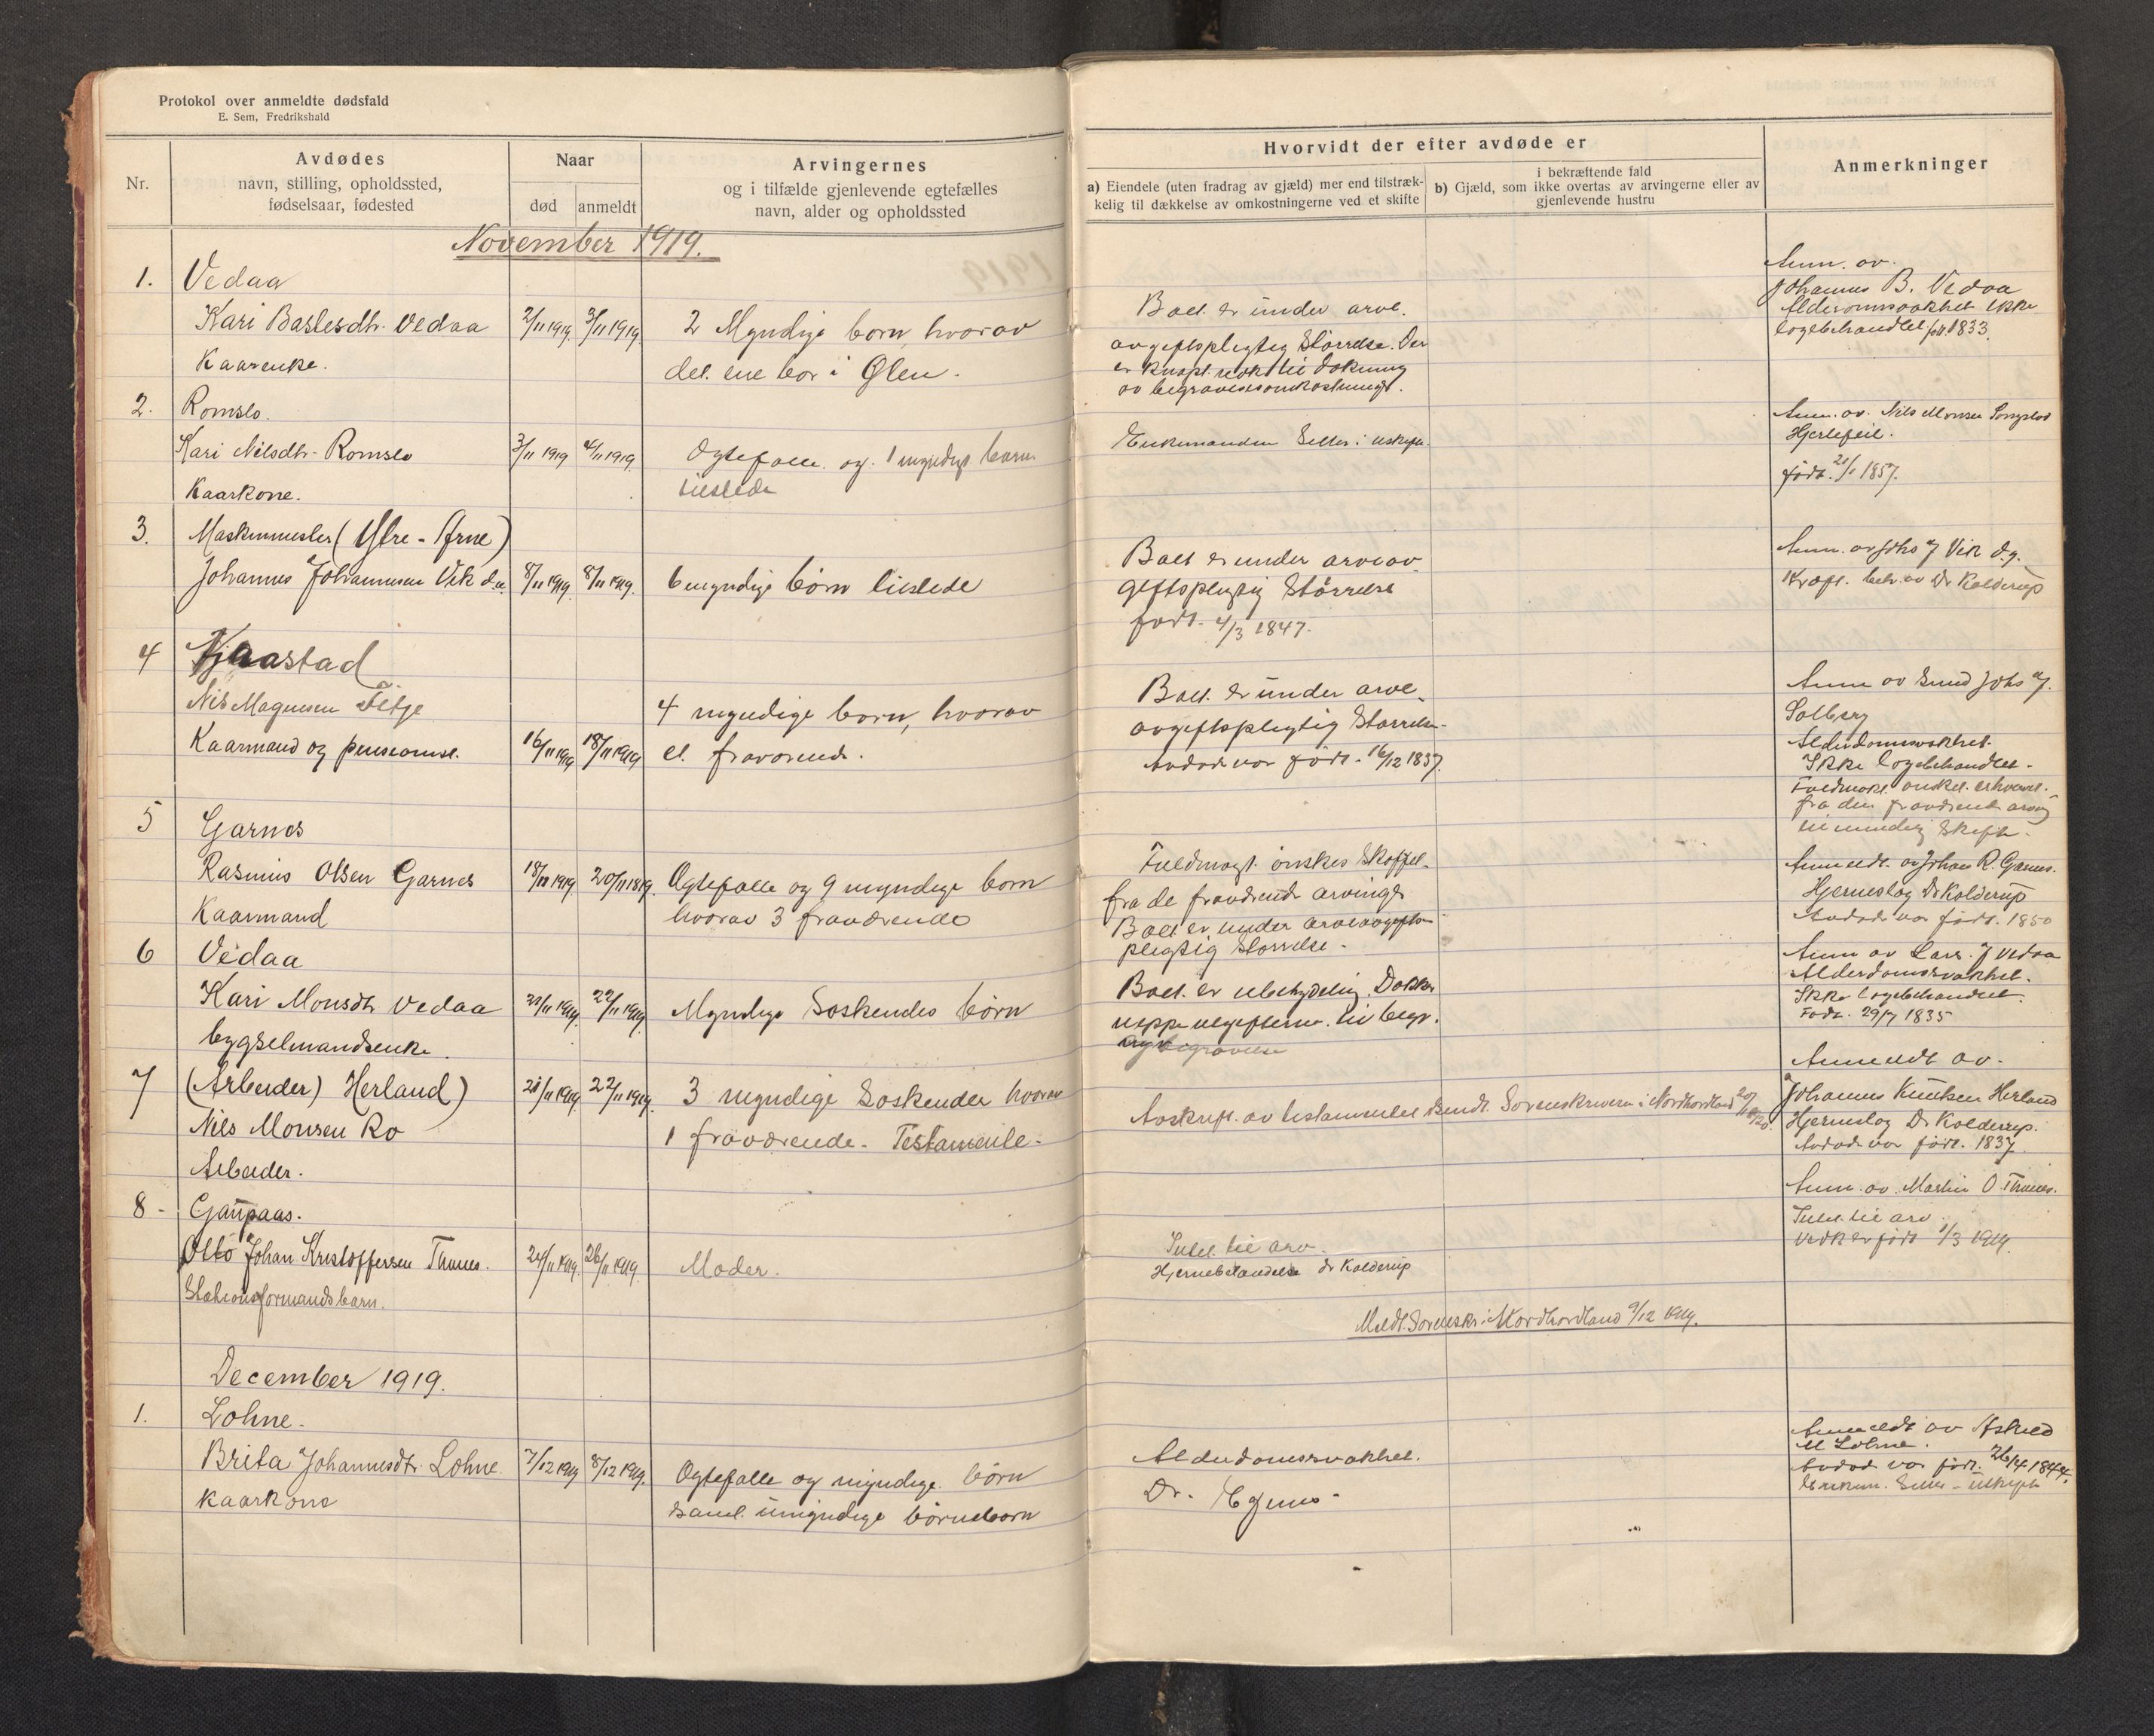 Protokol over anmeldte dødsfald
E. Sem, Fredrikshald
Nr.
Avdødes
navn, stilling, opholdssted,
fødselsaar, fødested
Naar
død
anmeldt
Arvingernes
og i tilfælde gjenlevende egtefælles
navn, alder og opholdssted
November 1919.
1. Vedaa
Kari Barlesdtr. Vedaa 2/11 1919. 3/11 1919. 2 Myndige børn, hvorav
Kaarenke. det ene bor i Ølen.
2. Romslo.
Kari Nilsdtr. Romslo 3/11 1919 4/11 1919. Ogtefælle og 1 myndigt barn
Kaarkone. tilstede
3. Maskinmester (Ytre-Arne)
Johannes Johannesen Vik d.æ. 8/11 1919. 8/11 1919. 6 myndige børn tilstede
4 Tjaastad
Nils Magnesen Fitje 4 myndige børn, hvorav
Kaarmand og pensionist. 16/11 1919 18/11 1919 et fraværende.
5 Garnes
Rasmus Olsen Garnes 18/11 1919 20/11 1819. Ogtefælle og 9 myndige born
Kaarmand hvorav 3 fraværende
6 Vedaa
Kari Monsdtr. Vedaa 21/11 1919. 22/11 1919. Myndige Søskendes børn
bygselmandsenke.
7 (Arbeider) Herland)
21/11 1919. 22/11 1919. 3 myndige Søskender hvorav
Nils Monsen Ro 1 fraværende. Testamente.
Arbeider.
8 - Gaupaas.
Otto Johan Kristoffersen Thunes. 24/11 1919. 26/11 1919. Moder.
Stationsformandsbarn.
December 1919.
1. Lohne.
Brita Johannesdtr. Lohne. 7/12 1919 8/12 1919. Ogtefælle og myndige børn
Kaarkone samt umyndige børnebørn
Hvorvidt der efter avdøde er
a) Eiendele (uten fradrag av gjæld) mer end tilstræk-
kelig til dækkelse av omkostningerne ved et skifte
i bekræftende fald
b) Gjæld, som ikke overtas av arvingerne eller av
gjenlevende hustru
Anmerkninger
Boet er under arve.
avgiftspligtig Størrelse. Der
er knapt nok til dækning
av begravelsesomkostninger.
Anm. av.
Johannes B. Vedaa
Alderdomssvakhet ikke
lægebehandlet født 1833.
Enkemanden Sitter i uskifte.
Anm. av. Nils Monsen
Hjertefeil.
født. 21/1 1857.
Boet er under arveav-
giftspligtig Størrelse
født. 4/3 1847.
Anm. av Johs J Vik d.y.
Kræft. beh. av Dr Kolderup
Boet er under arve-
avgiftspligtig Størrelse
Avdøde var født. 16/12 1837.
Anm av Johs J.
Solberg
Alderdomssvakhet.
Ikke lægebehandlet.
Fuldmakt ønsket erhvervet.
fra den fraværende arving
til mindelig Skifte.
Fuldmagt ønskes Skaffet
fra de fraværende arvinger
Boet er under arveavgifts-
pligtig Størrelse.
Anmeldt av Johan R. Garnes.
Hjerneslag Dr Kolderup
Avdøde var født. 1850
Boet er ubetydelig. Dækker
neppe utgifterne til begr.
Anm av Lars J Vedaa
Alderdomssvakhet.
Ikke lægebehandlet.
Født. 29/7 1835
Avskrift av testamentet sendt Sorenskriveren i Nordhordland
Anmeldt av.
Johannes Knutsen Herland
Hjerneslag Dr Kolderup.
Avdøde var født. 1837.
Intet til arv.
Hjernebetændelse dr Kolderup
Anm. av. Martin O. Thunes.
Intet til arv.
født 1/3 1919.
Meldt Sorenskr. i Nordhordland 9/12 1919.
Alderdomssvakhet.
Dr.
Anmeldt av
Lohne.
Avdøde var født. 26/4 1844.
Enkem. Sitter i uskifte